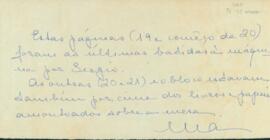 Estas páginas (19 e começo de 20)
foram as últimas batidas à máqui-
na por Sergio.
As outras (20 e 21) no bloco estavam
também por cima dos livros e papeis
amontoados sobre a mesa.